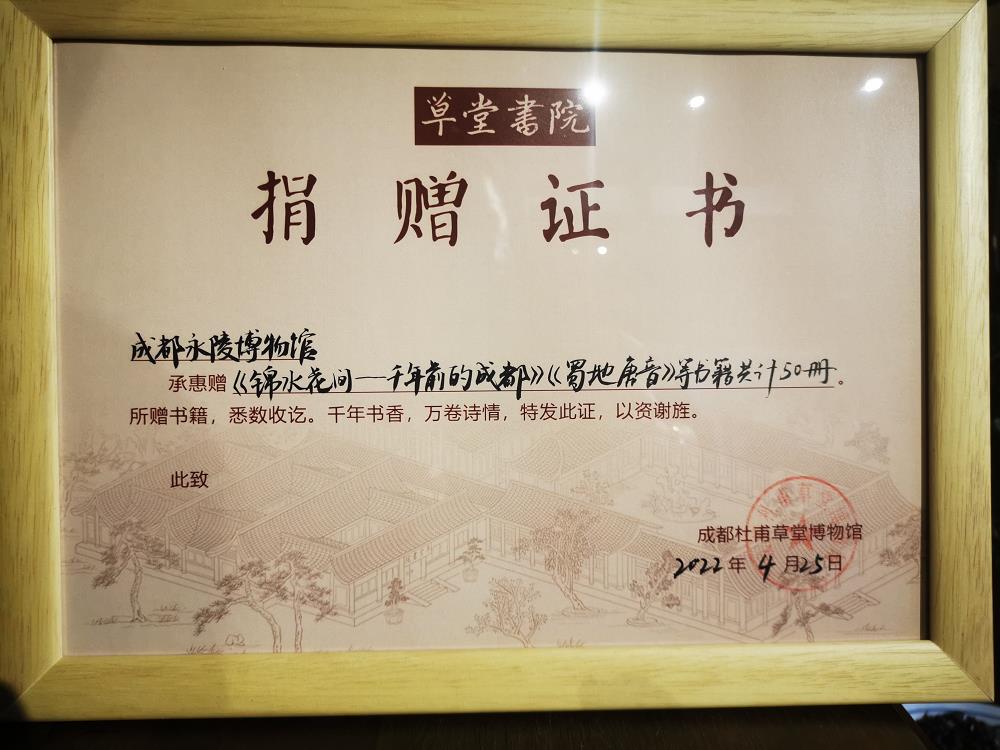 草堂书院
捐赠证书
成都永陵博物馆
承惠赠《锦水花间——千年前的成都》《蜀地唐音》等书籍共计50册。
所赠书籍，悉数收讫。千年书香，万卷诗情，特发此证，以资谢旌。
此致
成都杜甫草堂博物馆
2022年4月25日